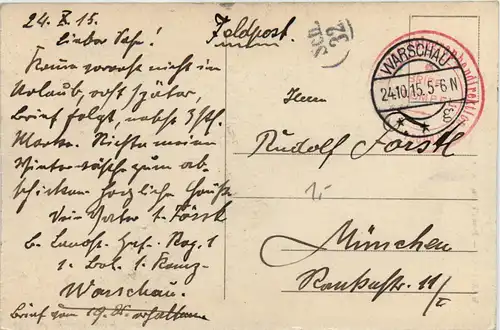 24. X. 15.
Lieber Sohn!
Komme vorerst nicht in
Urlaub, erst später
Brief folgt, nebst
Marke. Richte meine
Winter zum ab-
schicken herzliche Grüße
Dein Vater Förstl
b. Landst. Inf. Reg. 1
1. Bat. 1. Komp.
Warschau.
Brief vom 19. erhalten
Feldpost.
32
WARSCHAU
24.10.15. 5-6 N
Herrn
Rudolf Förstl
München
11/I